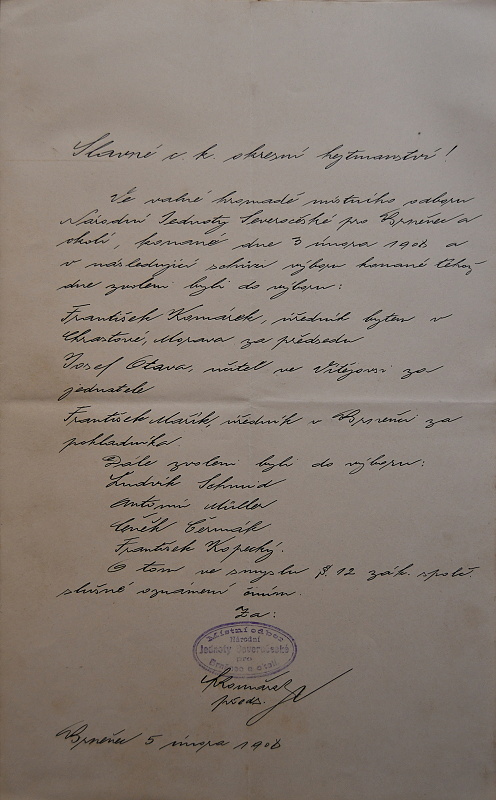 Slavné c. k. okresní hejtmanství!
Ve valné hromadě místního odboru
Národní Jednoty Severočeské pro Brněnec a
okolí, konané dne 3 února 1908 a
v následující schůzi výboru konané téhož
dne zvoleni byli do výboru:
František Komárek, úředník bytem v
Chrastové, Morava za předsedu
Josef Otava, učitel ve Vítějovsi za
jednatele
František Mařík, úředník v Brněnci za
pokladníka.
Dále zvoleni byli do výboru:
Ludvík Schmid
Antonín Müller
Čeněk Čermák
František Kopecký.
O tom ve smyslu §. 12 zák. spolč.
slušné oznámení činím.
Za:
Místní odbor
Národní
Jednoty Severočeské
pro
Brněnec a okolí
Komárek
předs.
Brněnec 5 února 1908